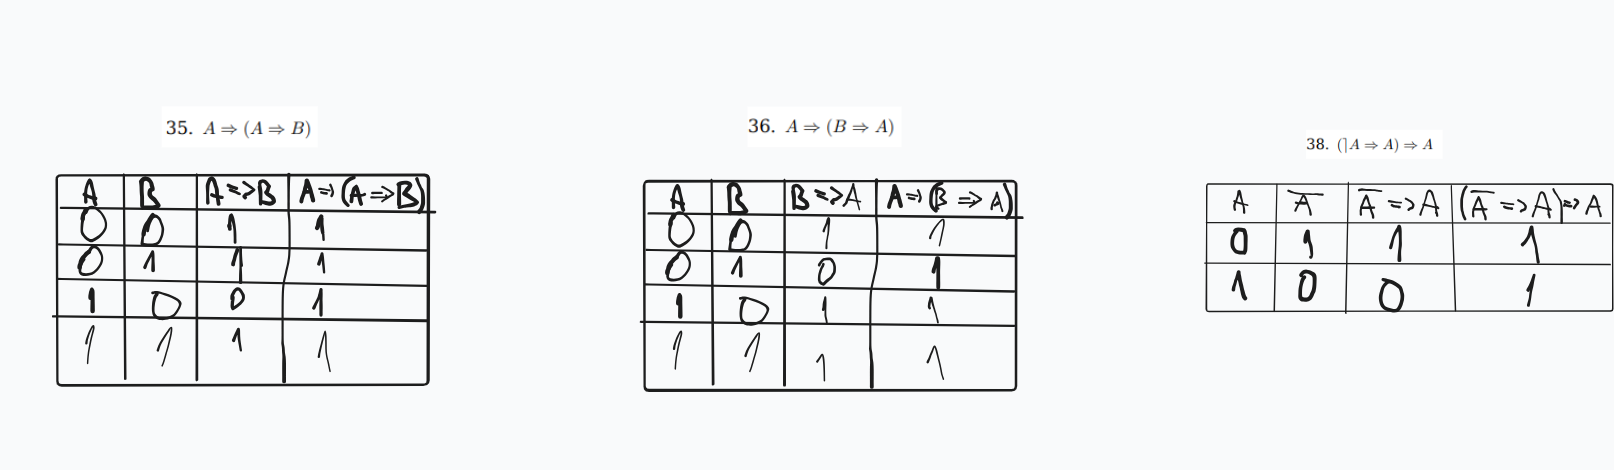 35. A ⇒ (A ⇒ B)
A B A=>B A=>(A=>B)
0 0 1 1
0 1 1 1
1 0 0 1
1 1 1 1
36. A ⇒ (B ⇒ A)
A B B=>A A=>(B=>A)
0 0 1 1
0 1 0 1
1 0 1 1
1 1 1 1
38. (⌉A ⇒ A) ⇒ A
A A̅ A̅=>A (A̅=>A)=>A
0 1 1 1
1 0 0 1